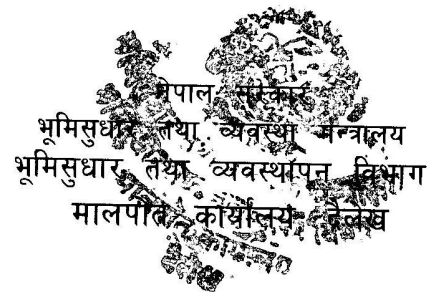 नेपाल सरकार
भूमिसुधार तथा व्यवस्था मन्त्रालय
भूमिसुधार तथा व्यवस्थापन विभाग
मालपोत कार्यालय दैलेख